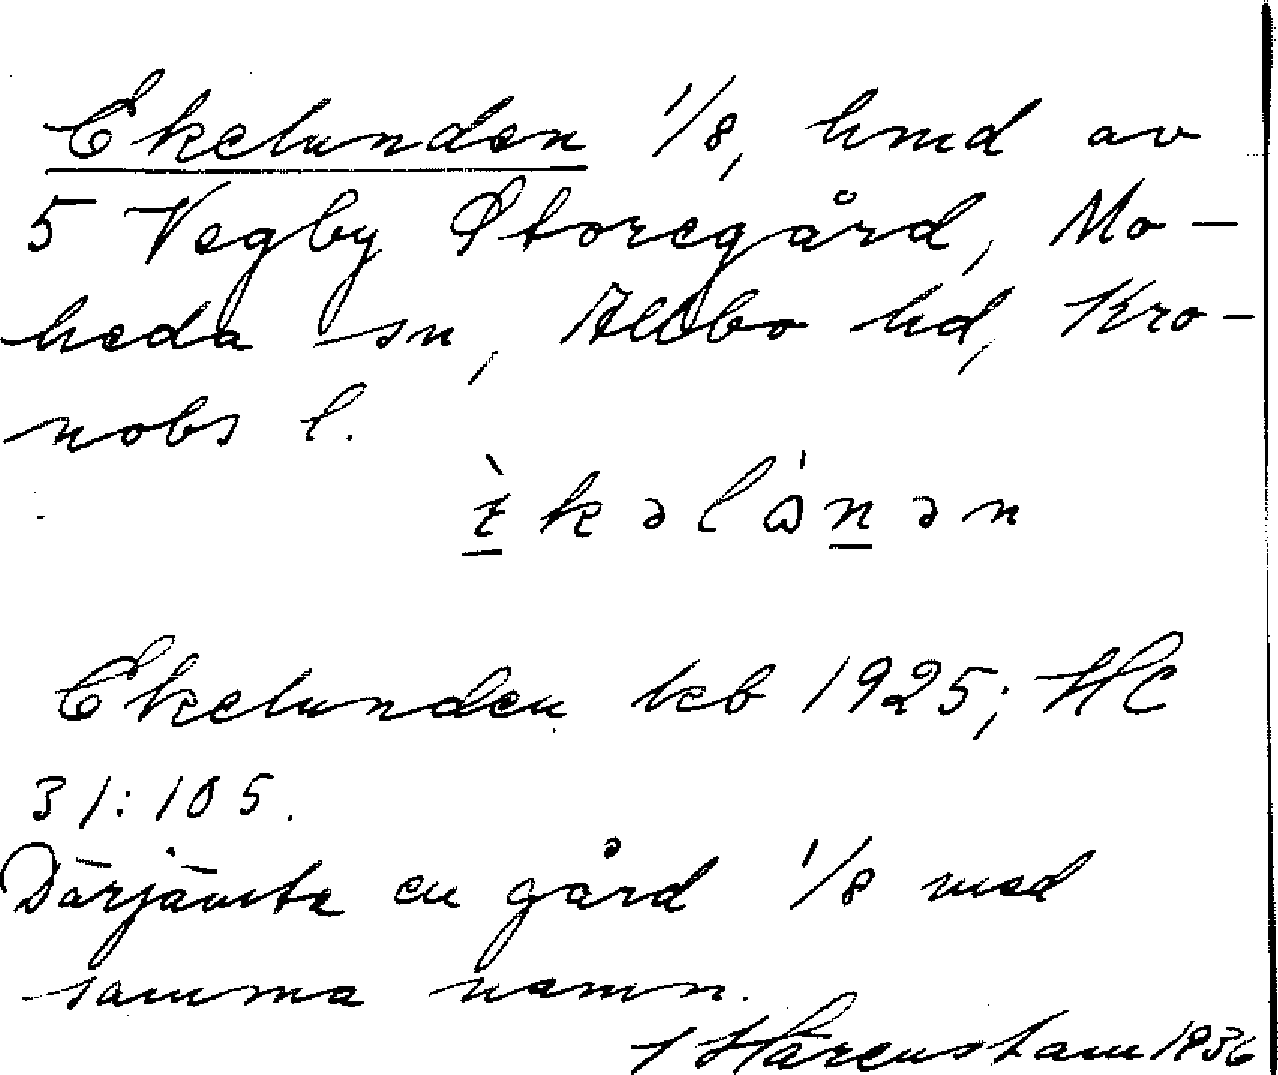 Ekelunden 1/8, hmd av
5 Vegby Storegård, Mo-
heda sn, Allbo hd, Kro-
nobs l.
èkəlɷ́nən
Ekelunden keb 1925; HC
31:105.
Därjämte en gård 1/8 med
samma namn.
Hårenstam 1936